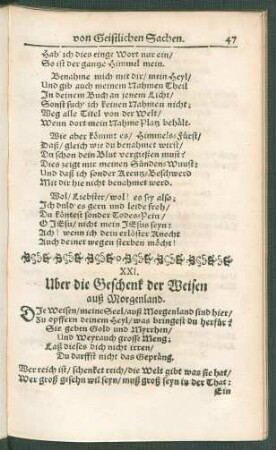 von Geistlichen Sachen. 47
Hab' ich dies einge Wort nur ein/
So ist der gantze Himmel mein.
Benahme mich mit dir/ mein Heyl/
Und gib auch meinem Nahmen Theil
In deinem Buch an jenem Licht/
Sonst such' ich keinen Nahmen nicht;
Weg alle Titel von der Welt/
Wenn dort mein Nahme Platz behält.
Wie aber kömmt es/ Himmels-Fürst/
Daß/ gleich wie du benahmet wirst/
Du schon dein Blut vergießen must?
Dies zeigt mir meinen Sünden-Wust;
Und daß ich sonder Creutz-Beschwerd
Mit dir hie nicht benahmet werd.
Wol/ Liebster/ wol! es sey also;
Ich duld es gern und leide froh/
Du köntest sonder Todes-Pein/
O JEsu/ nicht mein JEsus seyn:
Ach! wenn ich dein erlöster Knecht
Auch deinet wegen sterben möcht!
XXI.
Uber die Geschenk der Weisen
auß Morgenland.
DJe Weisen/ meine Seel/ auß Morgenland sind hier/
Zu opffern deinem Heyl/ was bringest du herfür?
Sie geben Gold und Myrrhen/
Und Weyrauch grosse Meng;
Laß dieses dich nicht irren/
Du darffst nicht das Gepräng.
Wer reich ist/ schencket reich/ die Welt gibt was sie hat/
Wer groß gesehn wil seyn/ muß groß seyn in der That:
Ein